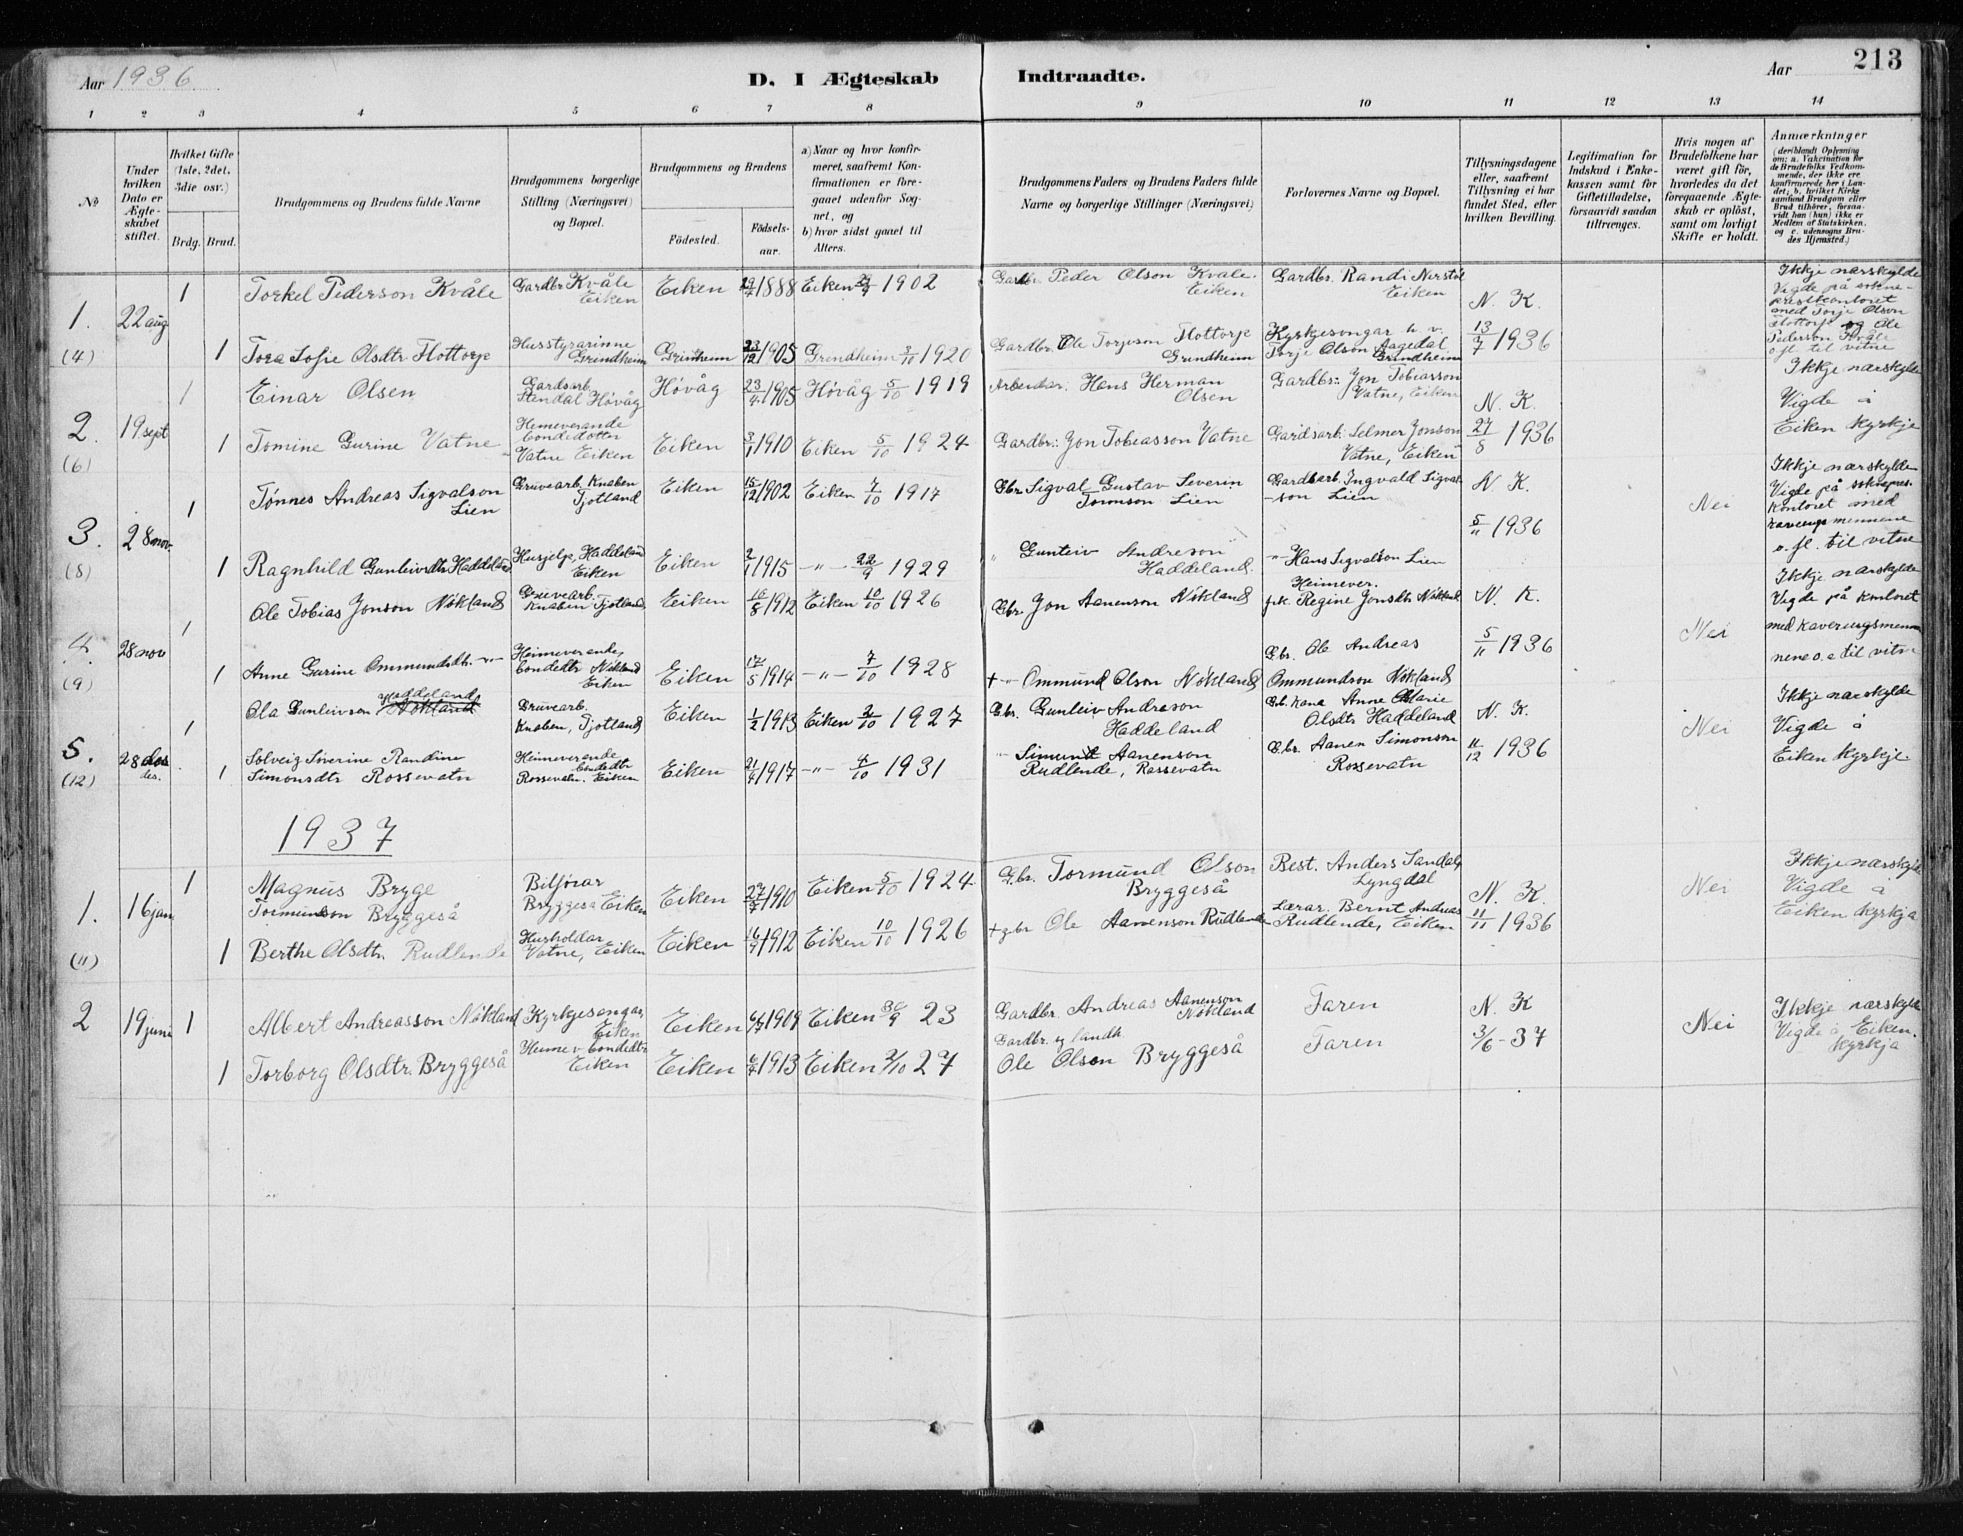 Aar 1936.
D. I Ægteskab Indtraadte.
Aar
213
1 2 3 4 5 6 7 8 9 10 11 12 13 14
No
Under hvilken Dato er Ægteskabet stiftet.
Hvilket Gifte (1ste, 2det, 3die osv.)
Brdg. Brud.
Brudgommens og Brudens fulde Navne
Brudgommens borgerlige Stilling (Næringsvei) og Bopæl.
Brudgommens og Brudens
Födested. Födsels-aar.
a) Naar og hvor konfirmeret, saafremt Konfirmationen er foregaaet udenfor Sognet, og
b) hvor sidst gaaet til Alters.
Brudgommens Faders og Brudens Faders fulde Navne og borgerlige Stillinger (Næringsvei)
Forlovernes Navne og Bopæl.
Tillysningsdagene eller, saafremt Tillysning ei har fundet Sted, efter hvilken Bevilling.
Legitimation for Indskud i Enkekassen samt for Giftetilladelse, forsaavidt saadan tiltrænges.
Hvis nogen af Brudefolkene har været gift før, hvorledes da det foregaaende Ægteskab er oplöst, samt om lovligt Skifte er holdt.
Anmærkninger (deriblandt Oplysning om; a. Vakcination for de Brudefolks Vedkommende, der ikke ere konfirmerede her i Landet; b. hvilket Kirkesamfund Brudgom eller Brud tilhörer, forsaavidt han (hun) ikke er Medlem af Statskirken, og c. udensogns Brudes Hjemsted.)
1. (4) 22 aug
1 Torkel Pederson Kvåle Gardbr Kvåle Eiken Eiken 29/7 1888 Eiken 1902 Gardbr. Peder Olson Kvåle. Eiken Gardbr. Randi Nerstöl Eiken N. K.
Ikkje nærskylde Vigde på sokneprestkontoret med Torje Olson Flottorp og Ole Pederson Kvåle o.fl. til vitne
1 Tora Sofie Olsdtr. Flottorp Husstyrarinne Grindheim Grindheim 23/12 1905 Grindheim 3/10 1920 Gardbr. Ole Torjeson Flottorp Grindheim Kyrkjesongar Torje Olson Aagedal Grindheim 13/7 1936
2. (6) 19 sept
1 Einar Olsen Gardsarb. Stendal Høvåg Høvåg 23/4 1905 Høvåg 5/10 1919 Arbeidar: Hans Herman Olsen Gardbr: Jon Tobiasson Vatne, Eiken N. K.
Ikkje nærskylde Vigde å Eiken kyrkje
1 Tomine Gurine Vatne Heimeverande bondedotter Vatne Eiken Eiken 3/1 1910 Eiken 5/10 1924 Gardbr.: Jon Tobiasson Vatne Gardsarb: Selmer Jonson Vatne, Eiken 27/8 1936
3. (8) 28 nov.
1 Tønnes Andreas Sigvalson Lien Gruvearb. Knaben Fjotland Eiken 15/12 1902 Eiken 7/10 1917 Gbr. Sigval Gustav Severin Tomson Lien Gardsarb. Ingvald Sigvalson Lien N. K. Nei
Ikkje nærskylde Vigde på soknepres-kontoret med kaveringsmennene o. fl. til vitne
1 Ragnhild Gunleivsdtr Haddeland Husjelp, Haddeland Eiken Eiken 2/1 1915 -"- 22/9 1929 " Gunleiv Andreson Haddeland. -"- Hans Sigvalson Lien 5/11 1936
4. (9) 28 nov
1 Ole Tobias Jonson Nökland Gruvearb. Knaben Fjotland Eiken 16/8 1912 Eiken 10/10 1926 Gbr Jon Aanenson Nökland Heimever. frk. Regine Jonsdtr Nökland N. K. Nei
Ikkje nærskylde Vigde på kontoret med kaveringsmennene o. a til vitne
1 Anne Gurine Ommundsdtr. -"- Heimeverende bondedtr Nökland Eiken Eiken 17/5 1914 -"- 7/10 1928 + -"- Ommund Olson Nökland Gbr. Ole Andreas Ommundson Nökland 5/11 1936
5. (12) 28 des.
1 Ola Gunleivson Haddeland Nökland Gruvearb. Knaben, Fjotland Eiken 1/2 1913 Eiken 2/10 1927 Gbr. Gunleiv Andreson Haddeland Gb. kona Anne Marie Olsdtr Haddeland N. K. Nei
Ikkje nærskylde Vigde å Eiken kyrkje.
1 Solveig Severine Randine Simonsdtr Rossevatn Heimeverande bondedtr Rossevatn. Eiken Eiken 21/4 1917 -"- 4/10 1931 -"- Simund Aanenson Rudlende, Rossevatn Gbr. Aanen Simonson Rossevatn 11/12 1936
1937
1. (11) 16 jan
1 Magnus Bryge Tormundson Bryggeså Bilförar Bryggeså Eiken Eiken 27/7 1910 Eiken 5/10 1924 Gbr. Tormund Olson Bryggeså Best. Anders Sandal, Lyngdal N. K. Nei
Ikkje nærskylde Vigde å Eiken kyrkja
1 Berthe Olsdtr. Rudlende Husholdar Vatne, Eiken Eiken 16/9 1912 Eiken 10/10 1926 + gbr Ole Aanenson Rudlende Lærar. Bernt Andreas Rudlende, Eiken 11/11 1936
2 19 juni
1 Albert Andreasson Nökland Kyrkjesongar, Eiken Eiken 1909 Eiken 30/9 23 Gardbr. Andreas Aanenson Nökland Faren N. K Nei
Ikkje nærskylde Vigde i Eiken. kyrkja
1 Torborg Olsdtr. Bryggeså Heimev bondedtr Eiken Eiken 1913 Eiken 2/10 27 Gardbr. og landh. Ole Olson Bryggeså Faren 3/6-37